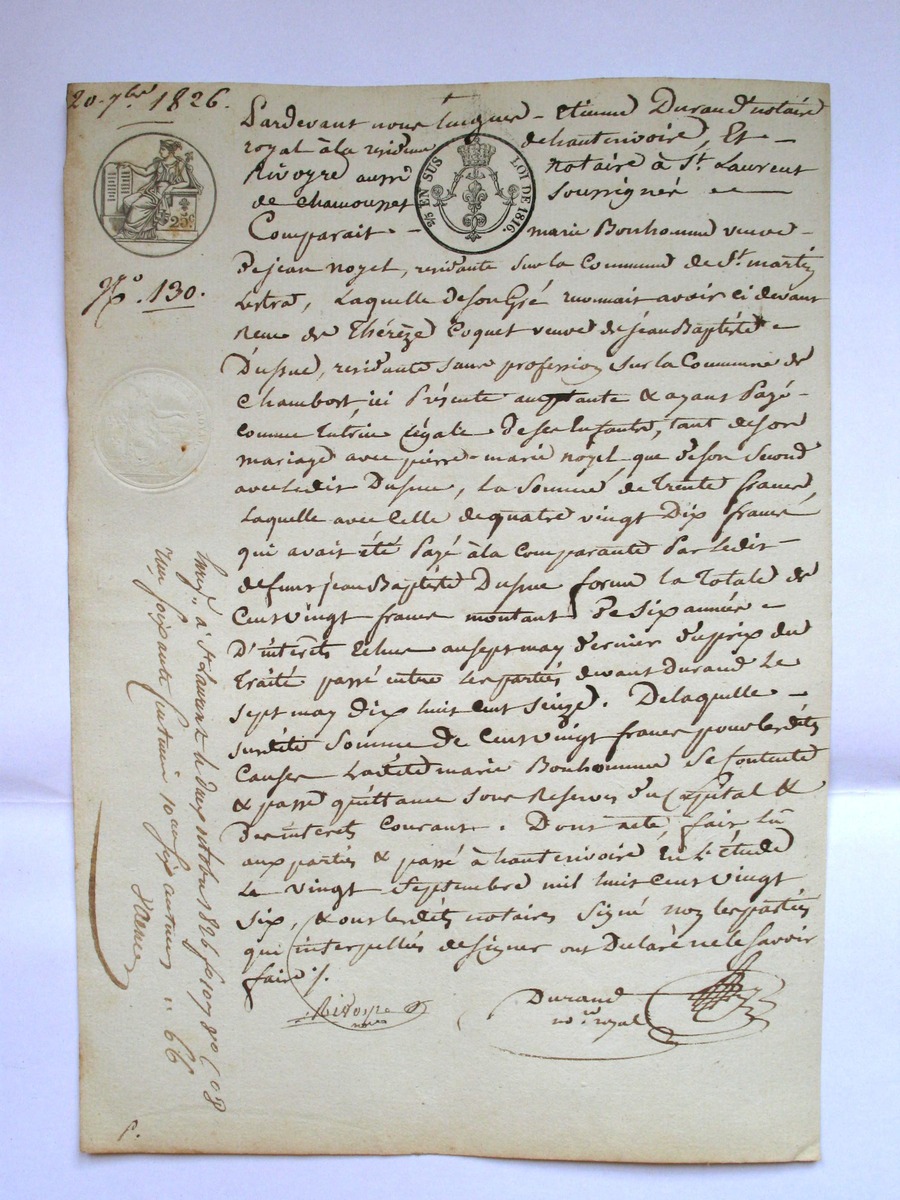 20 7bre 1826.
Pardevant nous Etienne Durand notaire
royal à la residence de hauterivoire, Et
Rivoyre aussi notaire à St. Laurent
de Chamousset Soussignés
Comparait marie Bonhomme veuve
De jean noyel, residante sur la Commune de St. martin
Lestra, Laquelle de son Gré reconnait avoir ci devant
Reçue de Thérèze Coquet veuve de jean Baptiste
Dussue, residante sans profession sur la Commune de
Chambost ici Présente acceptante & ayant Payé
Comme tutrice Légale de ses Enfants, tant de son
mariage avec pierre-marie noyel que de son Second
avec Ledit Dussue, La Somme de trente francs
Laquelle avec Celle de quatre vingt Dix francs
qui avait été Payé à la Comparante Par Ledit
defunt jean Baptiste Dussue forme la Totale de
Cent vingt francs montant De Six années
D'intérêts Echus au sept may Dernier Du prix du
traité passé entre les parties devant Durand Le
sept may Dix huit cent seize. De laquelle
susdite Somme de Cent vingt francs pour lesdites
Causes Ladite marie Bonhomme Se Contente
& passe quittance sous Reserves Du Capital &
Des interets Courants. Dont acte, fait Lu
aux parties & passé à hauterivoire En L'étude
Le vingt Septembre mil huit cent vingt
six, & ont lesdits notaires signé non les parties
qui interpellées de signer ont Declaré ne le Savoir
faire ./.
Rivoyre
nore
Durand
nore royal
25c
2/5 EN SUS LOI DE 1816.
No. 130.
Enregt. à St Laurent le deux octobre 1826 fo 107 Vo C 08
Reçu soixante centimes 10e six centimes : 66
P.